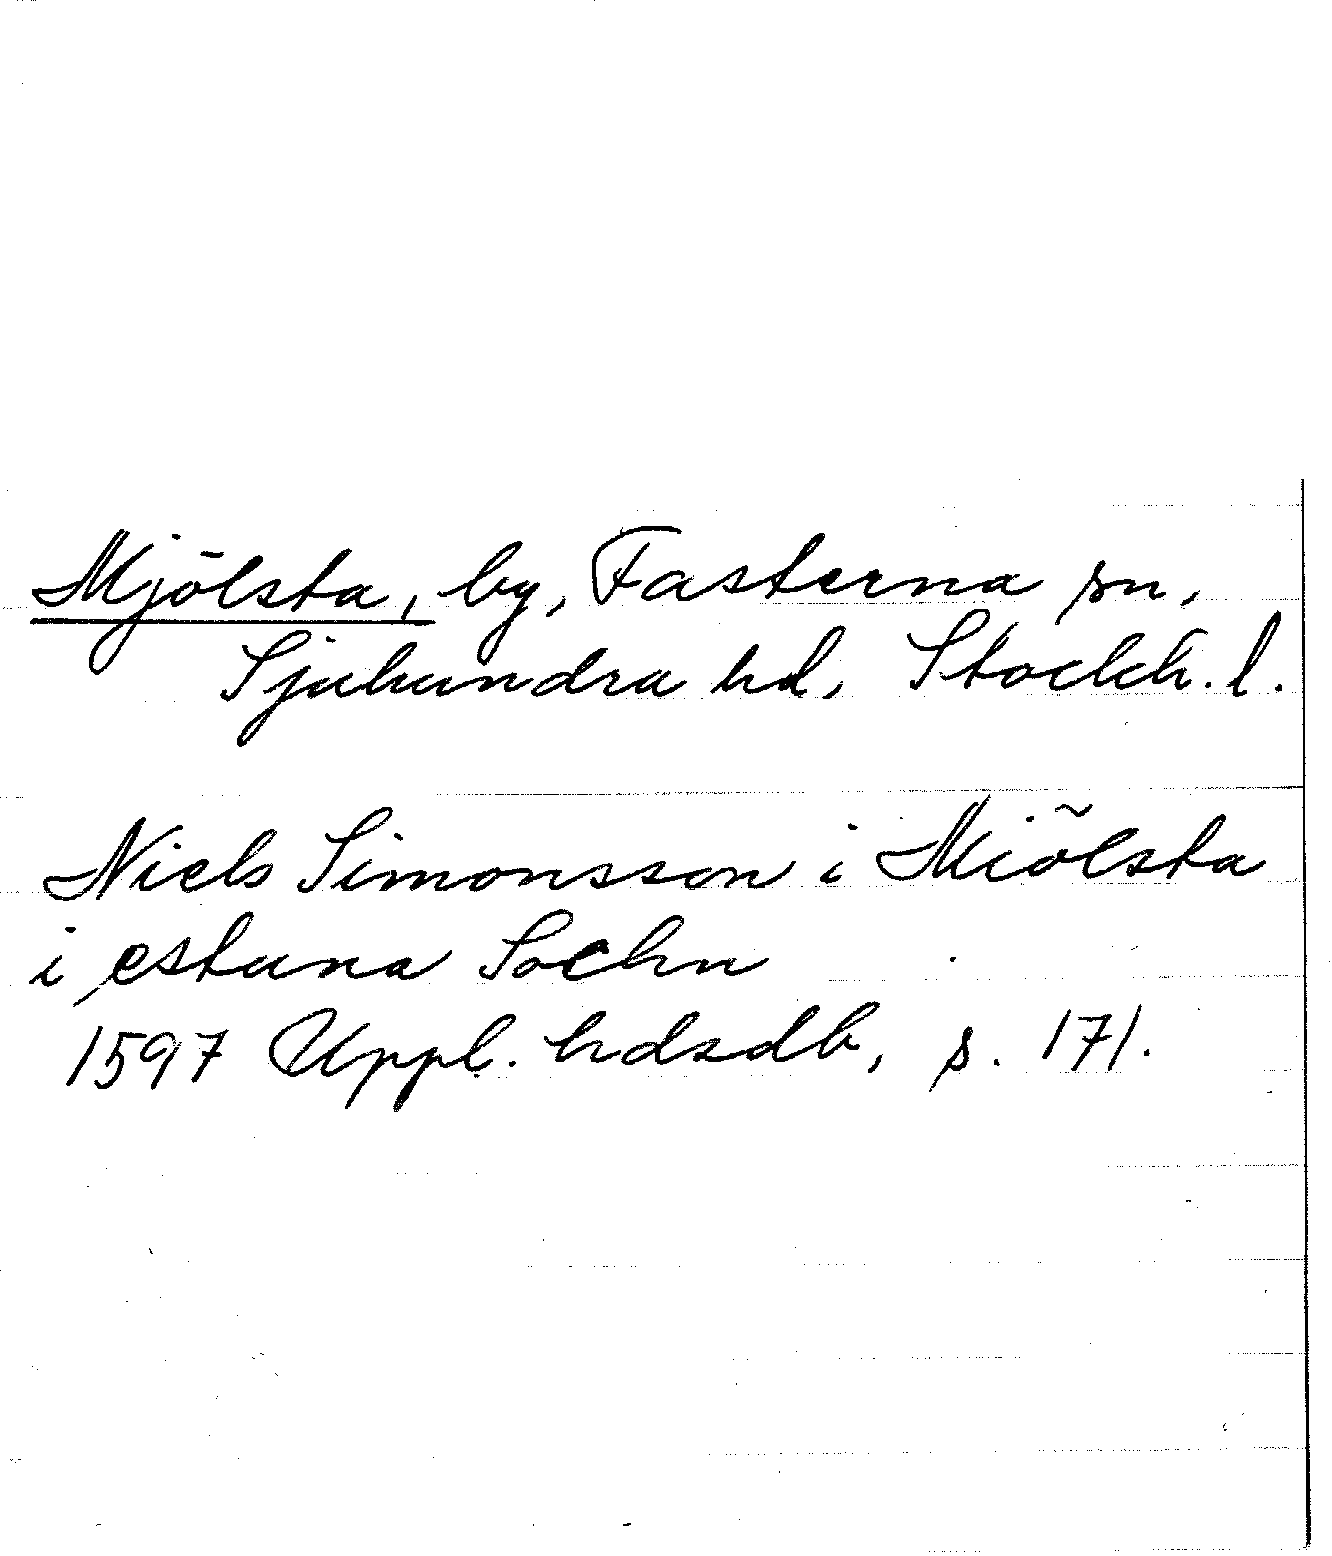 Mjölsta, by, Fasterna sn,
Sjuhundra hd, Stockh. l.
Niels Simonsson i Miõlsta
i estuna Sochn
1597 Uppl. hdsdb, s. 171.